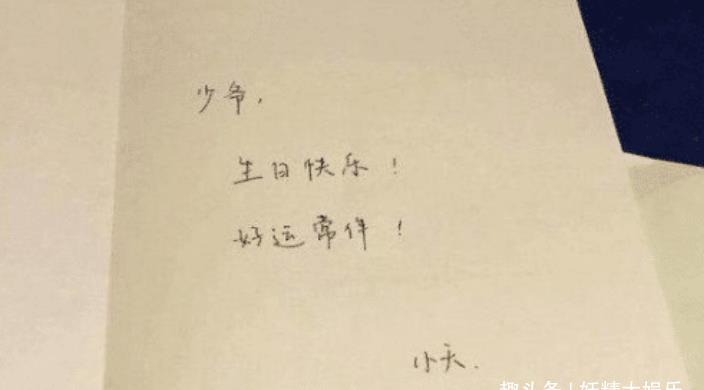 少爷，
生日快乐！
好运常伴！
小天.
趣头条 | 妖精大娱乐